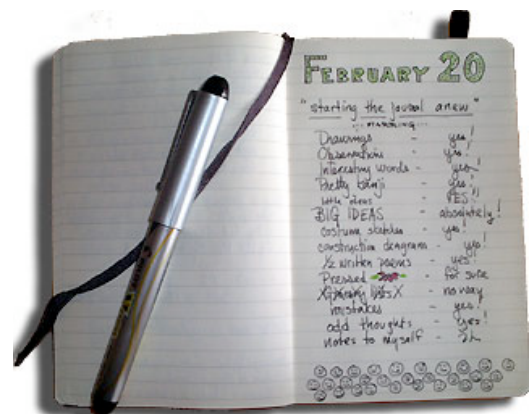 FEBRUARY 20
"starting the journal anew"
Drawings - yes!
Observations - yes!
Interesting words - yes!
Pretty kanji - yes!
little ideas - YES!!
BIG IDEAS - absolutely!
costume sketches - yes!
construction diagrams - yes!
1/2 written poems - yes!
Pressed - for sure
X lists X - no way
mistakes - yes!
odd thoughts - yes!
notes to myself -